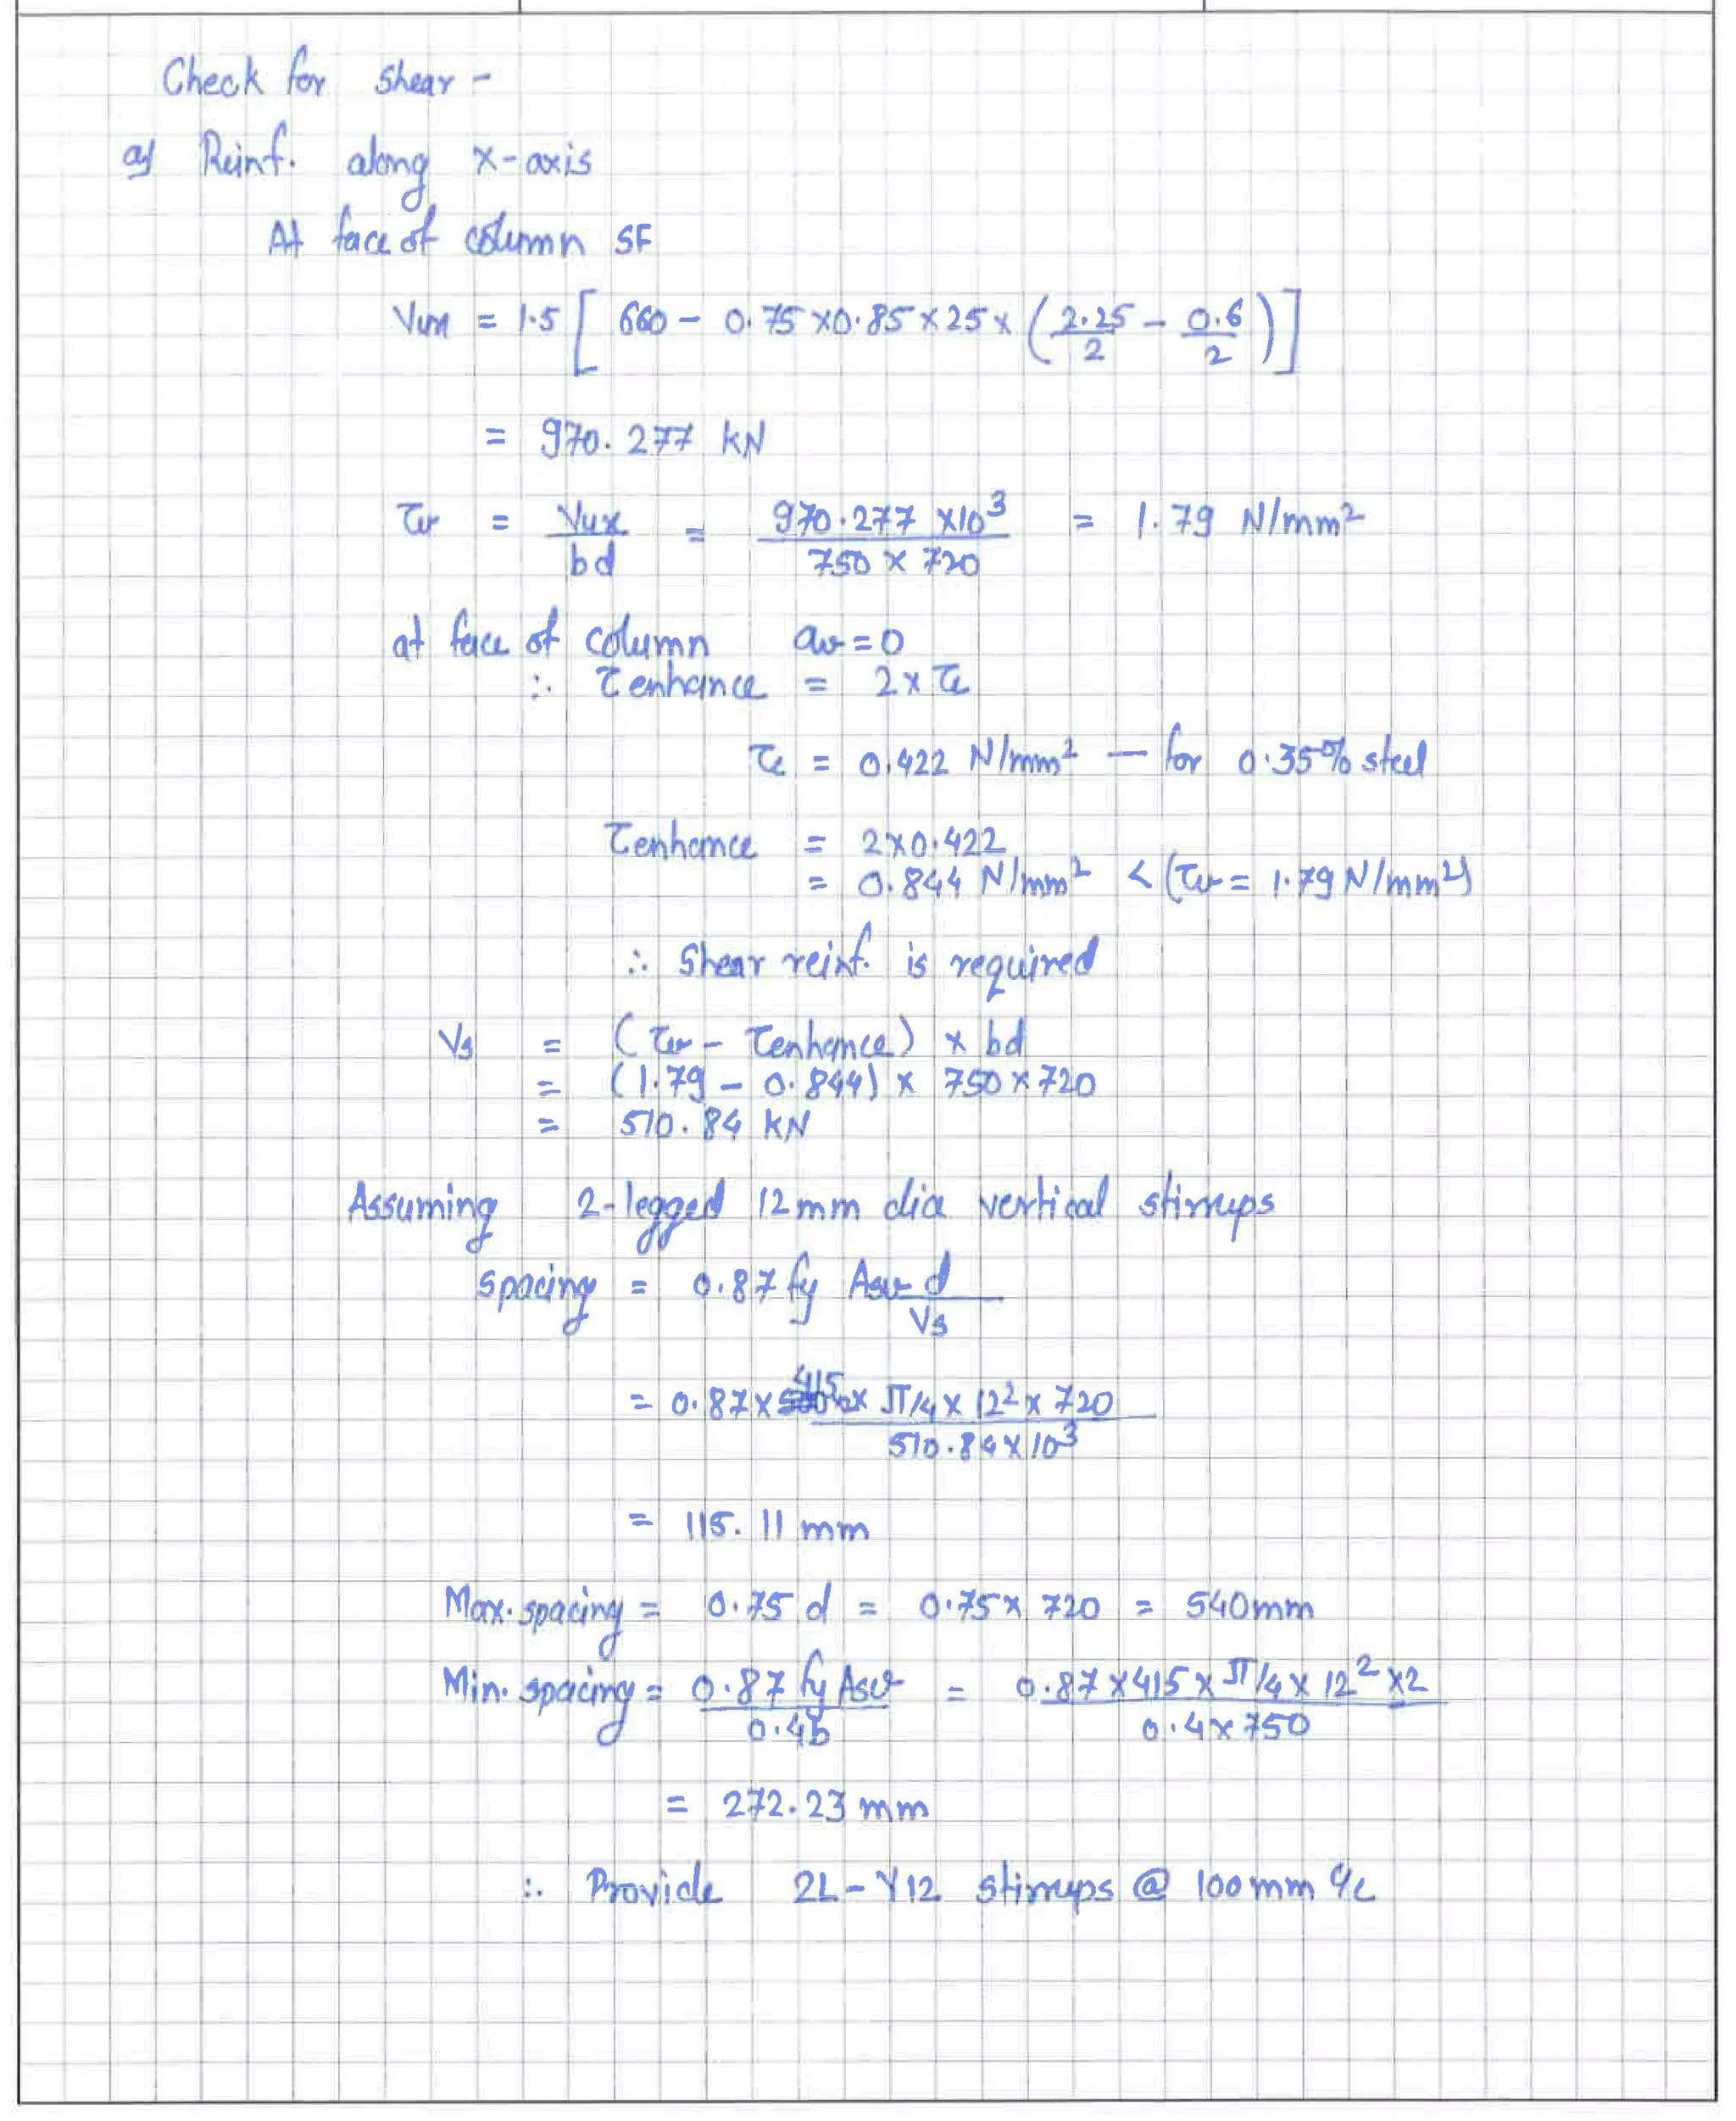 Check for shear -
a) Reinf. along x-axis
At face of column SF
Vux = 1.5 [ 660 - 0.75 x 0.85 x 25 x ( 2.25/2 - 0.6/2 ) ]
= 970.277 kN
τv = Vux/bd = 970.277 x10³ / 750 x 720 = 1.79 N/mm²
at face of column av = 0
∴ τenhance = 2 x τc
τc = 0.422 N/mm² — for 0.35% steel
τenhance = 2x0.422
= 0.844 N/mm² < (τv = 1.79 N/mm²)
∴ Shear reinf. is required
Vs = (τv - τenhance) x bd
= (1.79 - 0.844) x 750 x 720
= 510.84 kN
Assuming 2-legged 12mm dia vertical stirrups
Spacing = 0.87 fy Asv d / Vs
= 0.87 x 415 x π/4 x 12² x 720 / 510.84 x 10³
= 115.11 mm
Max. spacing = 0.75 d = 0.75 x 720 = 540mm
Min. spacing = 0.87 fy Asv / 0.4b = 0.87 x 415 x π/4 x 12² x 2 / 0.4 x 750
= 272.23 mm
∴ Provide 2L - Y12 stirrups @ 100mm c/c